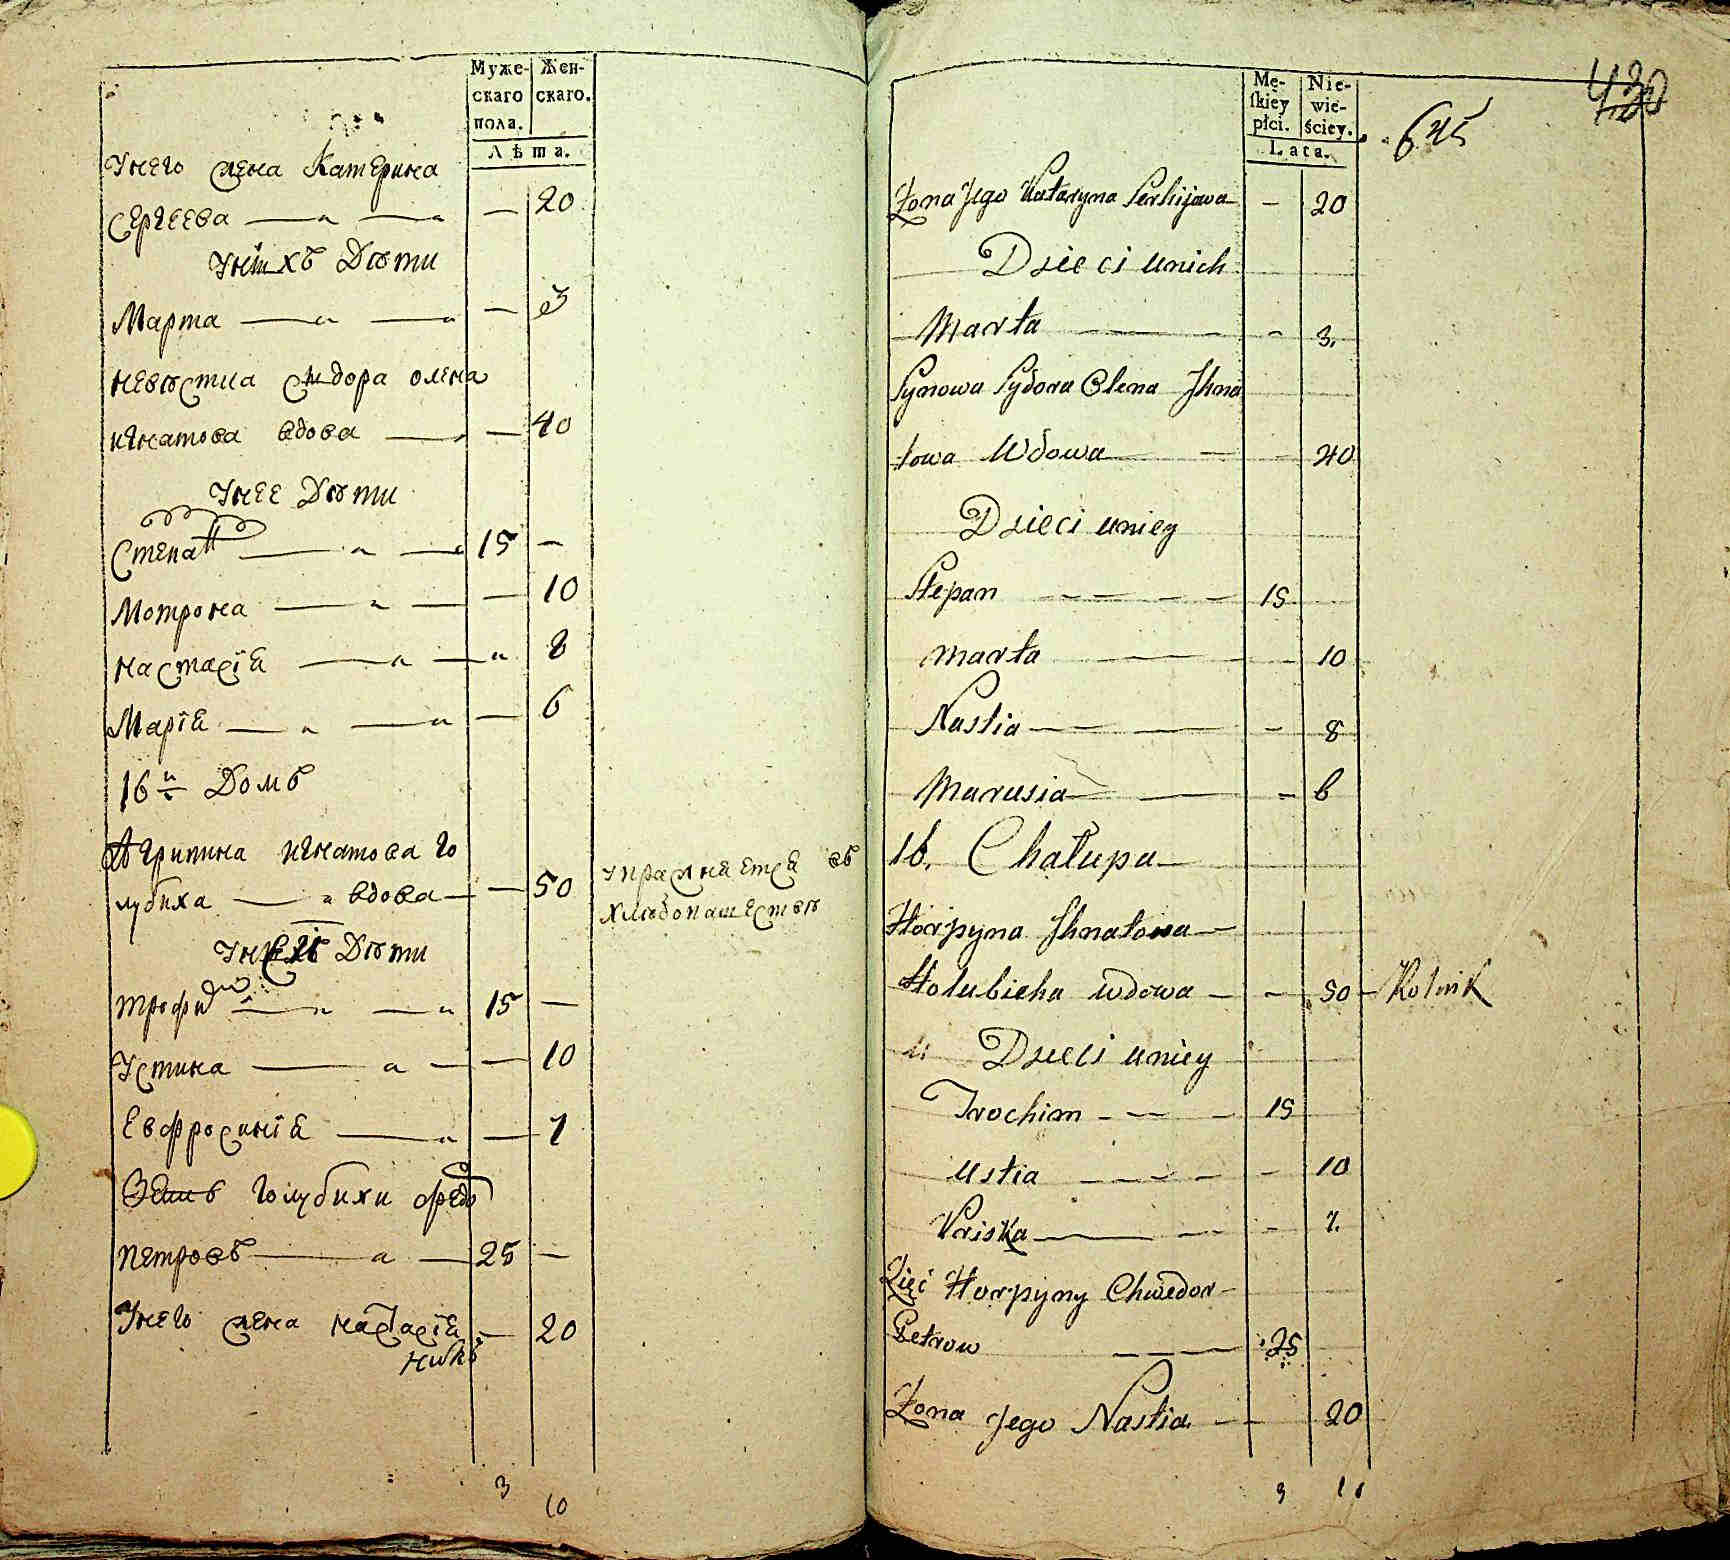 Муже-
скаго
пола.
Жен-
скаго.
Лѣта.
Унего жена Катерина
Сергеева — „ — „ — 20
Унихъ Дѣти
Марта — „ — „ — 3
невѣстка Сидора олена
игнатова вдова — „ — 40
Унее Дѣти
Степан — „ — „ 15 —
Мотрона — „ — — 10
настасія — „ — „ 8
Марія — „ — „ — 6
16й Домъ
Агрипина игнатова го
лубиха — „ вдова — — 50
упражняется въ
хлѣбопашествѣ
Унеи Дѣти
трофим — „ — „ 15 —
Устина — „ — — 10
Евфросинія — „ — 7
Зять голубихи федо
петровъ — „ — 25 —
Унего жена настасія — 20
3 10
430
645
Mę-
skiey
płci.
Nie-
wie-
ściey.
Lata.
Żona Jego Kataryna Serhijowa — 20
Dzieci unich
Marta — — 3.
Synowa Sydora Olena Jhna
towa Wdowa — — 40
Dzieci uniey
Stepan — — — — 15
Marta — — 10
Nastia — — — 8
Marusia — — 6
16. Chałupa
Horpyna Jhnatowa —
Holubicha wdowa — — 50 — Rolnik
Dzieci uniey
Trochim — — — 15
Ustia — — — — 10
Priska — — — 7.
Zięć Horpyny Chwedor —
Petrow — — — 25
Żona Jego Nastia — — 20
3 11